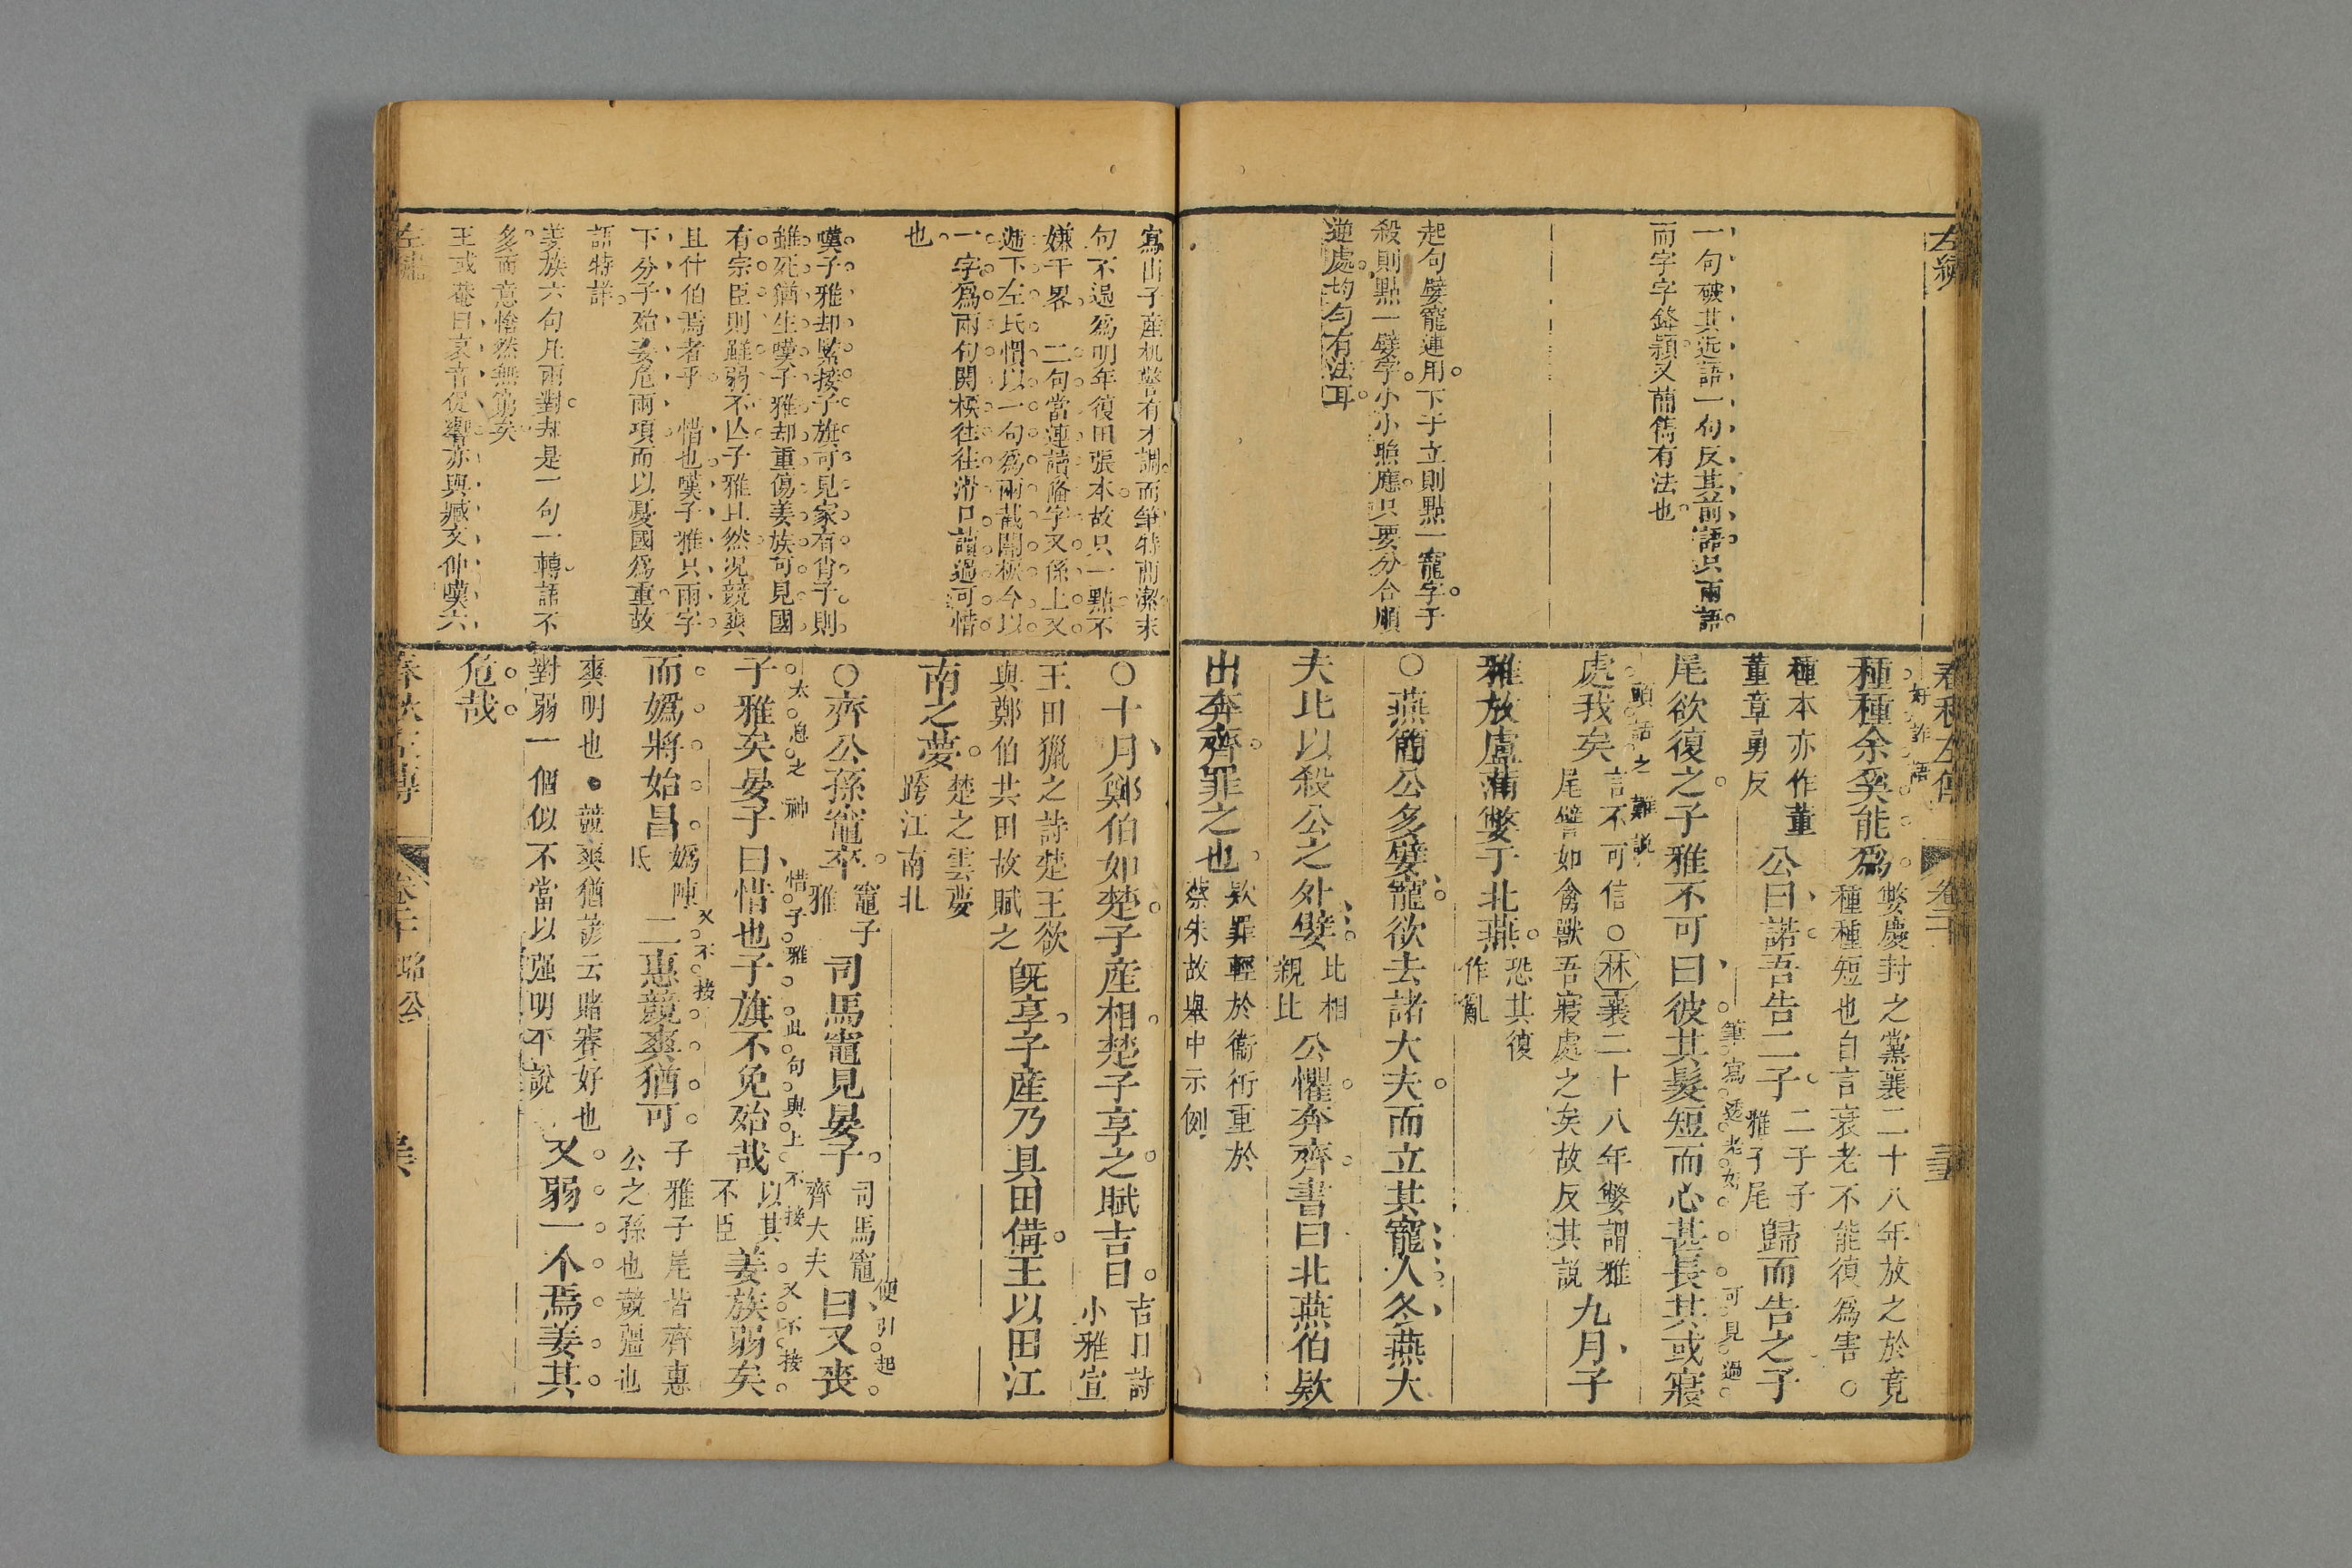 左繡
一句破其近語一句反其前語只兩語
而字字鋒穎又蕳雋有法也
起句嬖寵連用下子立則點一寵字子
殺則點一嬖字小小照應只要分合順
逆處均勻有法耳
春秋左傳
卷二十
種種余奚能爲
好詐語
嫳慶封之黨襄二十八年放之於竟
種種短也自言衰老不能復爲害○
種本亦作董
董章勇反
公曰諾吾告二子
二子子
雅子尾
歸而告之子
尾欲復之子雅不可曰彼其髮短而心甚長其或寢
筆寫透老奸
可見過
處我矣
頭話之難說
言不可信○林襄二十八年嫳謂雅
尾譬如禽獸吾寢處之矣故反其說
九月子
雅放盧蒲嫳于北燕
恐其復
作亂
○燕簡公多嬖寵欲去諸大夫而立其寵人冬燕大
夫比以殺公之外嬖
比相
親比
公懼奔齊書曰北燕伯欵
出奔齊罪之也
欵罪輕於衞衎重於
蔡朱故舉中示例
寫出子產機警有才調而筆特蕳潔末
句不過爲明年復田張本故只一點不
嫌干畧 二句當連讀俻字又係上又
遞下左氏慣以一句爲兩截關棙今以
一字爲兩句関棙往往滑口讀過可惜
也
嘆子雅却緊接子旗可見家有肖子則
雖死猶生嘆子雅却重傷姜族可見國
有宗臣則雖弱不亾子雅且然况競爽
且什伯焉者乎 惜也嘆子雅只兩字
下分子殆姜危兩項而以憂國爲重故
語特詳
姜族六句凡兩對却是一句一轉語不
多而意愴然無窮矣
王或菴曰哀音促響亦與臧文仲嘆六
○十月鄭伯如楚子產相楚子享之賦吉日
吉日詩
小雅宣
王田獵之詩楚王欲
與鄭伯共田故賦之
旣享子產乃具田備王以田江
南之夢
楚之雲夢
跨江南北
○齊公孫竈卒
竈子
雅
司馬竈見晏子
司馬竈
齊大夫
曰又喪
便引起
子雅矣晏子曰惜也子旗不免殆哉
太息之神
惜子雅
此句與上不接
以其
不臣
姜族弱矣
又不接
而嬀將始昌
嬀陳
氏
又不接
二惠競爽猶可
子雅子尾皆齊惠
公之孫也競彊也
爽明也●競爽猶諺云賭賽好也
對弱一個似不當以强明不說
又弱一个焉姜其
危哉
左繡
春秋左傳
卷二十
昭公